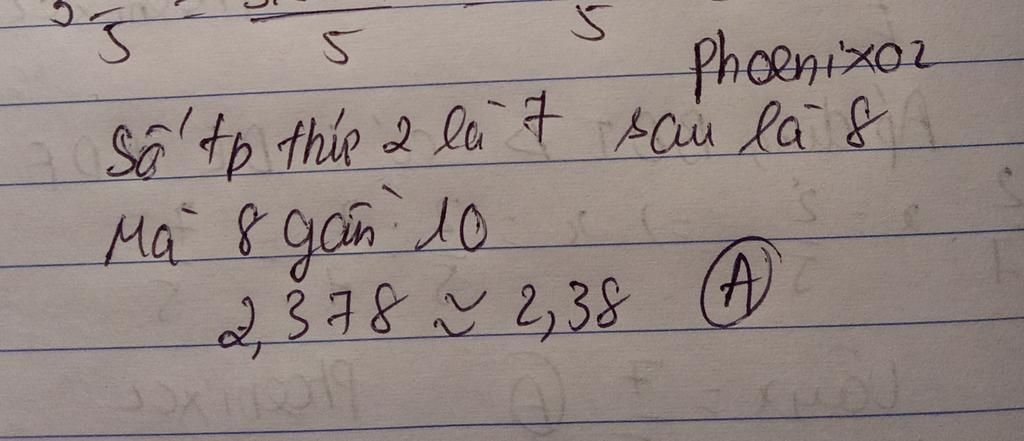 5 5 5
Phoenix02
Số tp thứ 2 là 7 sau là 8
Mà 8 gần 10
2,378 ≈ 2,38 A